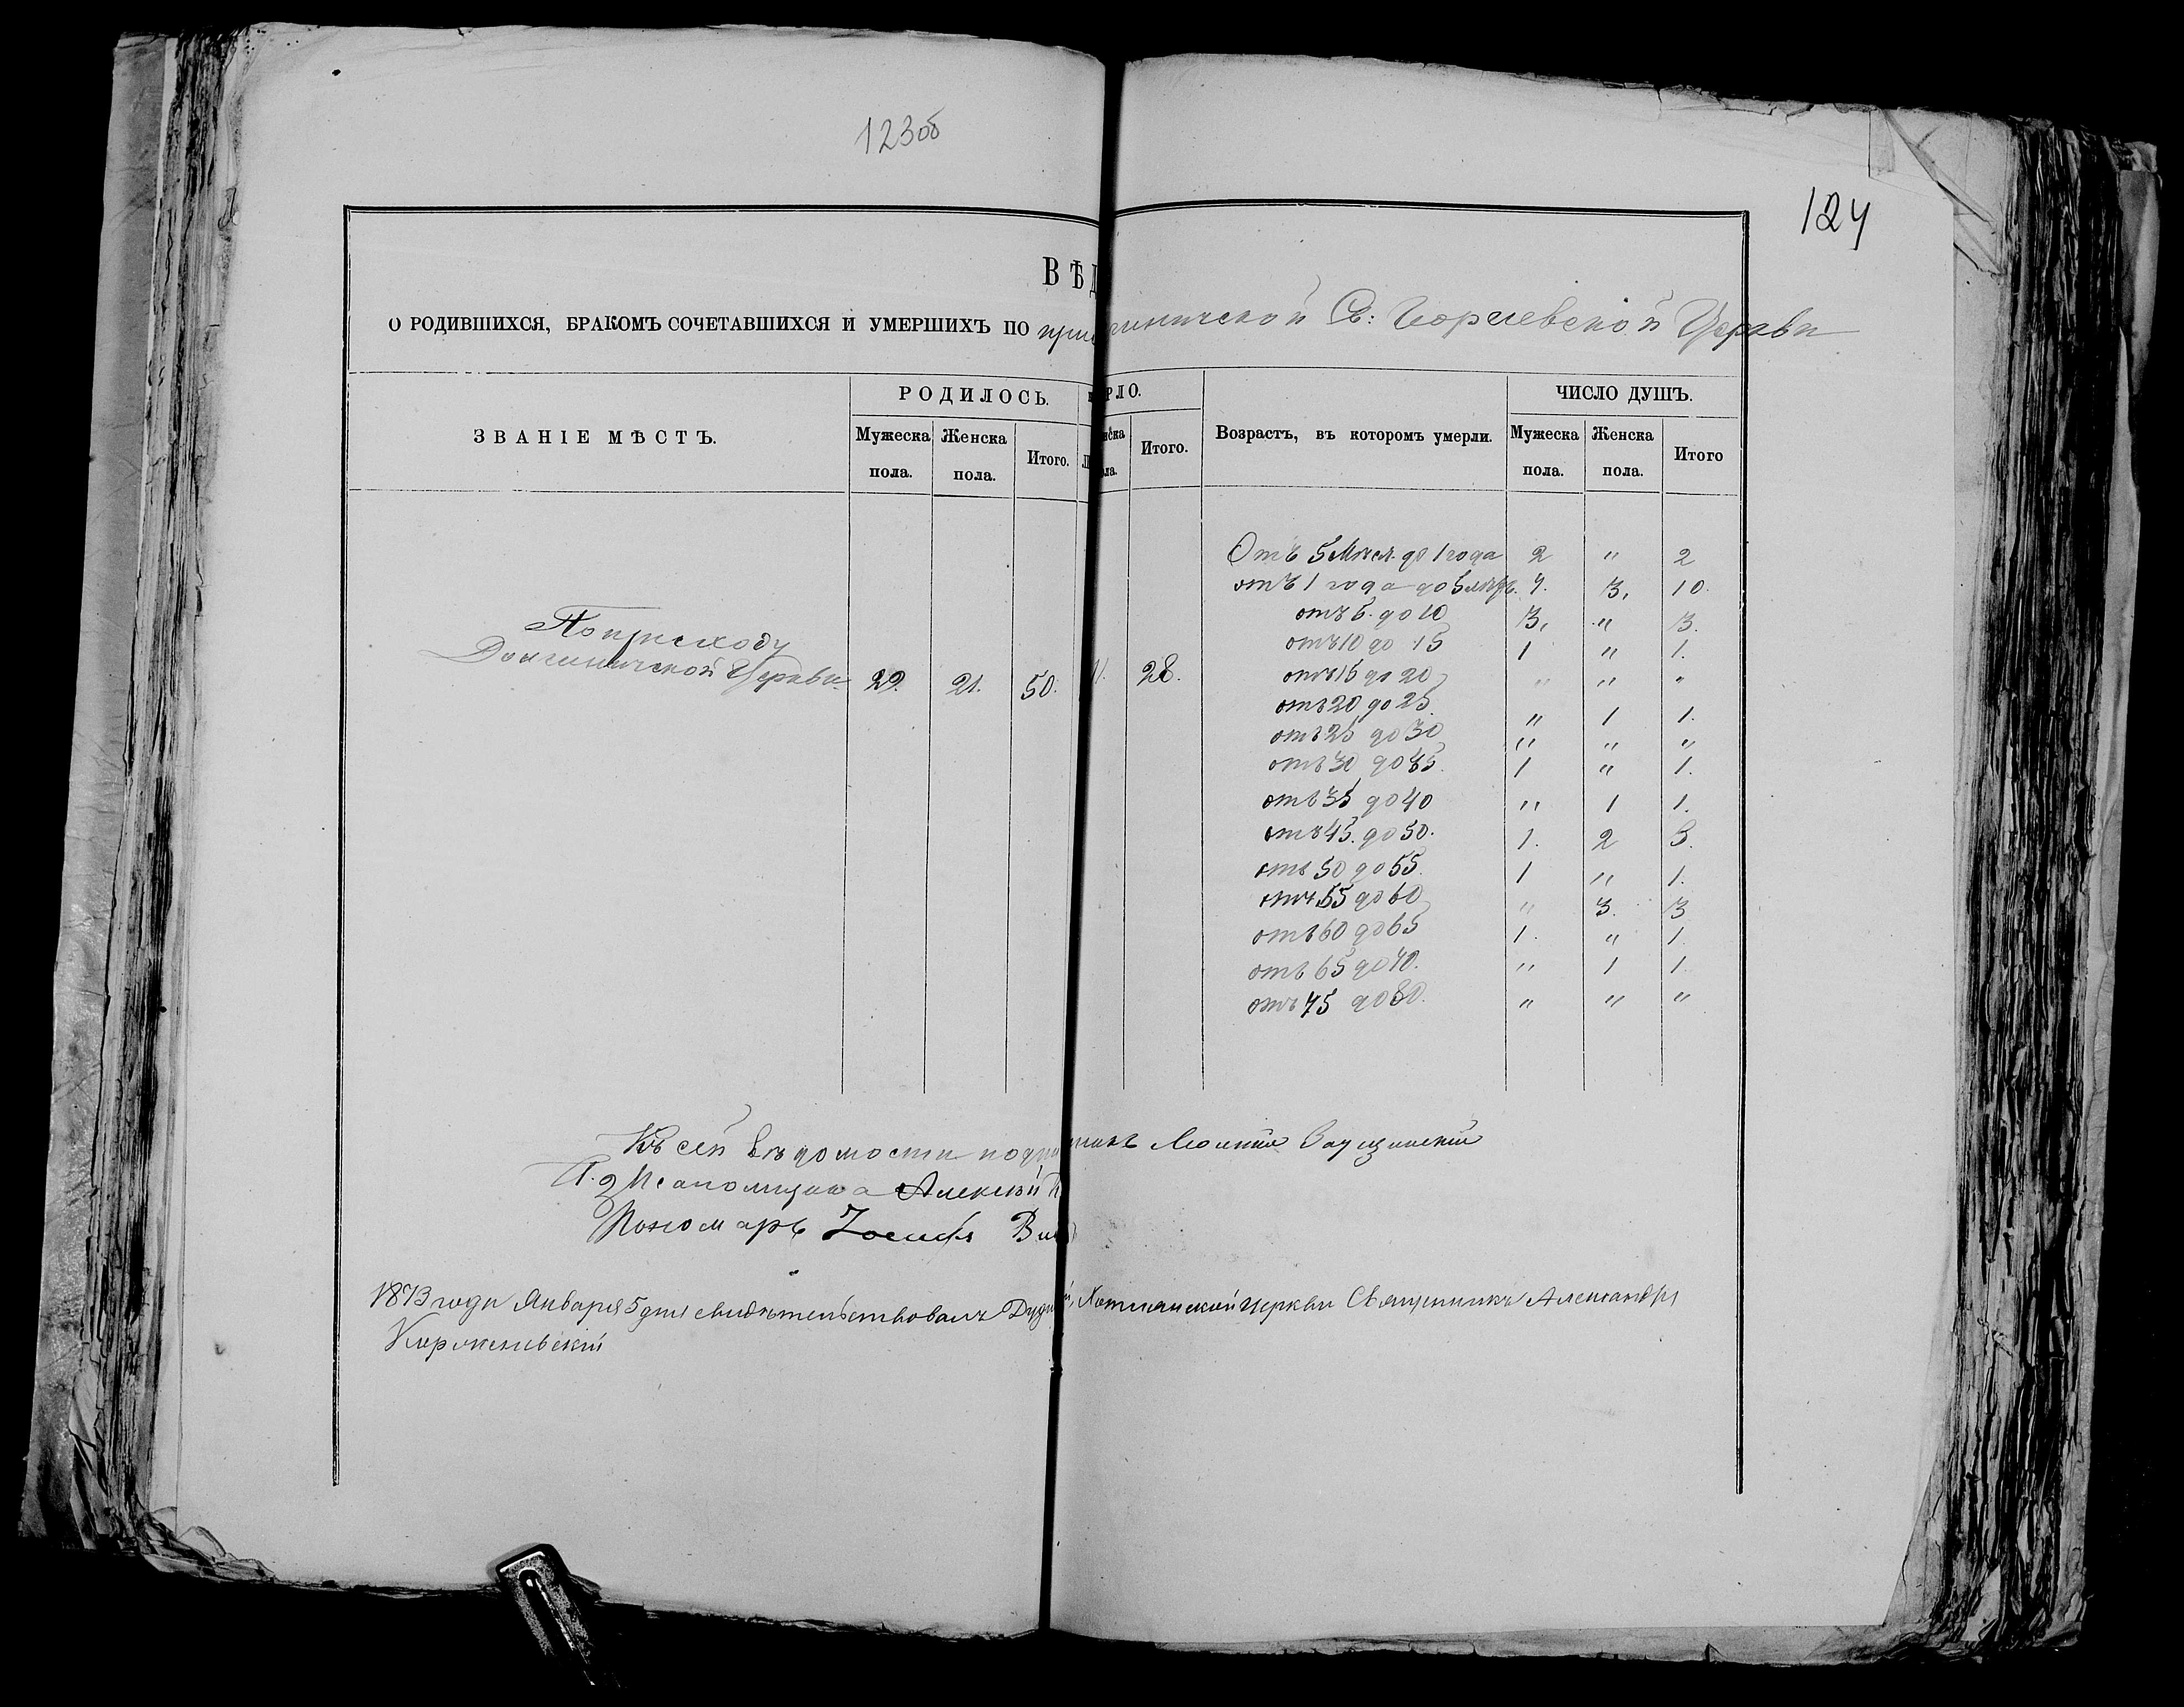 123об
124
ВѢД
О РОДИВШИХСЯ, БРАКОМЪ СОЧЕТАВШИХСЯ И УМЕРШИХЪ ПО при гиничской Св: Георгіевской Церкви
ЗВАНІЕ МѢСТЪ. РОДИЛОСЬ. РЛО. Возрастъ, въ которомъ умерли. ЧИСЛО ДУШЪ.
Мужеска пола. Женска пола. Итого. Итого. Мужеска пола. Женска пола. Итого
Отъ 5 Мѣся. до 1 года 2 " 2
отъ 1 года до 5 лѣтъ. 7. 3. 10.
отъ 5. до 10 3. " 3.
отъ 10 до 15 1 " 1.
отъ 15 до 20 " " "
отъ 20 до 25. " 1 1.
отъ 25 до 30 " " "
отъ 30 до 35. 1 " 1.
отъ 35 до 40 " 1 1.
отъ 45. до 50. 1. 2 3.
отъ 50 до 55. 1 " 1.
отъ 55 до 60 " 3. 3
отъ 60 до 65 1. " 1.
отъ 65 до 70. " 1 1.
отъ 75 до 80. " " "
По приходу
Долгиничской Церкви. 29. 21. 50. 11. 28.
Къ сей вѣдомости
Псаломщика Алексѣй
Пономарь Іосифъ
1873 года Января 5 дня свидѣтельствовалъ церкви Священникъ Александръ